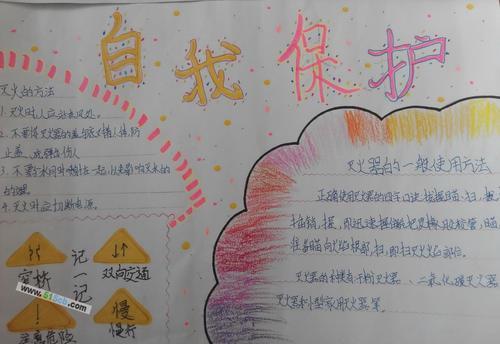 自我保护
灭火的方法
1.灭火时人应站在上风处。
2.不要将灭火器的盖与底对着人体,防
止盖、底弹出伤人
3.不要与水同时喷射在一起,以免影响灭火的
效果。
4.灭火时应切断电源。
记一记
窄桥
双向交通
注意危险
慢
慢行
www.515cb.com
灭火器的一般使用方法
正确使用灭火器的四字口诀
拔销
准备瞄向火焰根部,扫,即扫灭火焰部位。
灭火器的种类有干粉灭火器、二氧化碳灭火器
灭火器和小型家用灭火器等。